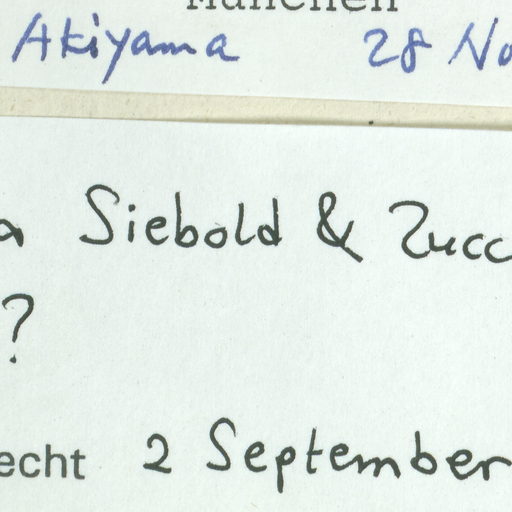 München
Akiyama 28 No
a Siebold & Zucc
?
echt 2 September